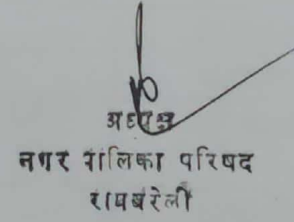 अध्यक्ष
नगर पालिका परिषद
रायबरेली